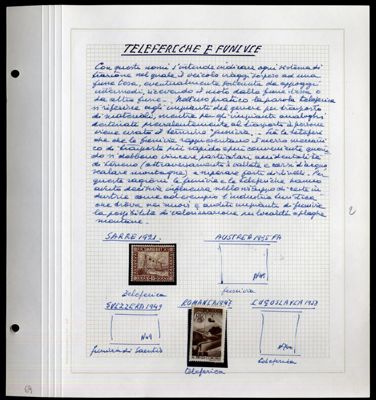 TELEFERICHE E FUNIVIE
Con questi nomi s'intende indicare ogni sistema di
trazione nel quale il veicolo viaggi sospeso ad una
fune tesa, eventualmente sostenuta da appoggi
intermedi, ricevendo il moto dalla fune stessa o
da altra fune. Nell'uso pratico la parola teleferica
si riferisce agli impianti del genere per trasporto
di materiali, mentre per gli impianti analoghi
destinati prevalentemente al trasporto di persone
viene usato il termine "funivia". Sia la telefe
rica che la funivia rappresentano il mezzo meccani
co di trasporto più rapido e più conveniente quan
do si debbono vincere particolari accidentalità
di terreno (attraversamenti di vallate e corsi d'acqua
scalare montagne) e superare forti dislivelli. Per
queste ragioni la funivia e la teleferiche hanno
avuto decisiva influenza nello sviluppo di certe in
dustrie come ad esempio l'industria turistica
che trova nei nuovi e arditi impianti di funivie
la possibilità di valorizzazione di località
montane.
2
SARRE 1921 AUSTRIA 1955 PA
teleferica funivia
SVIZZERA 1949 ROMANIA 1947 IUGOSLAVIA 1963
funivia di Saentis teleferica teleferica
69